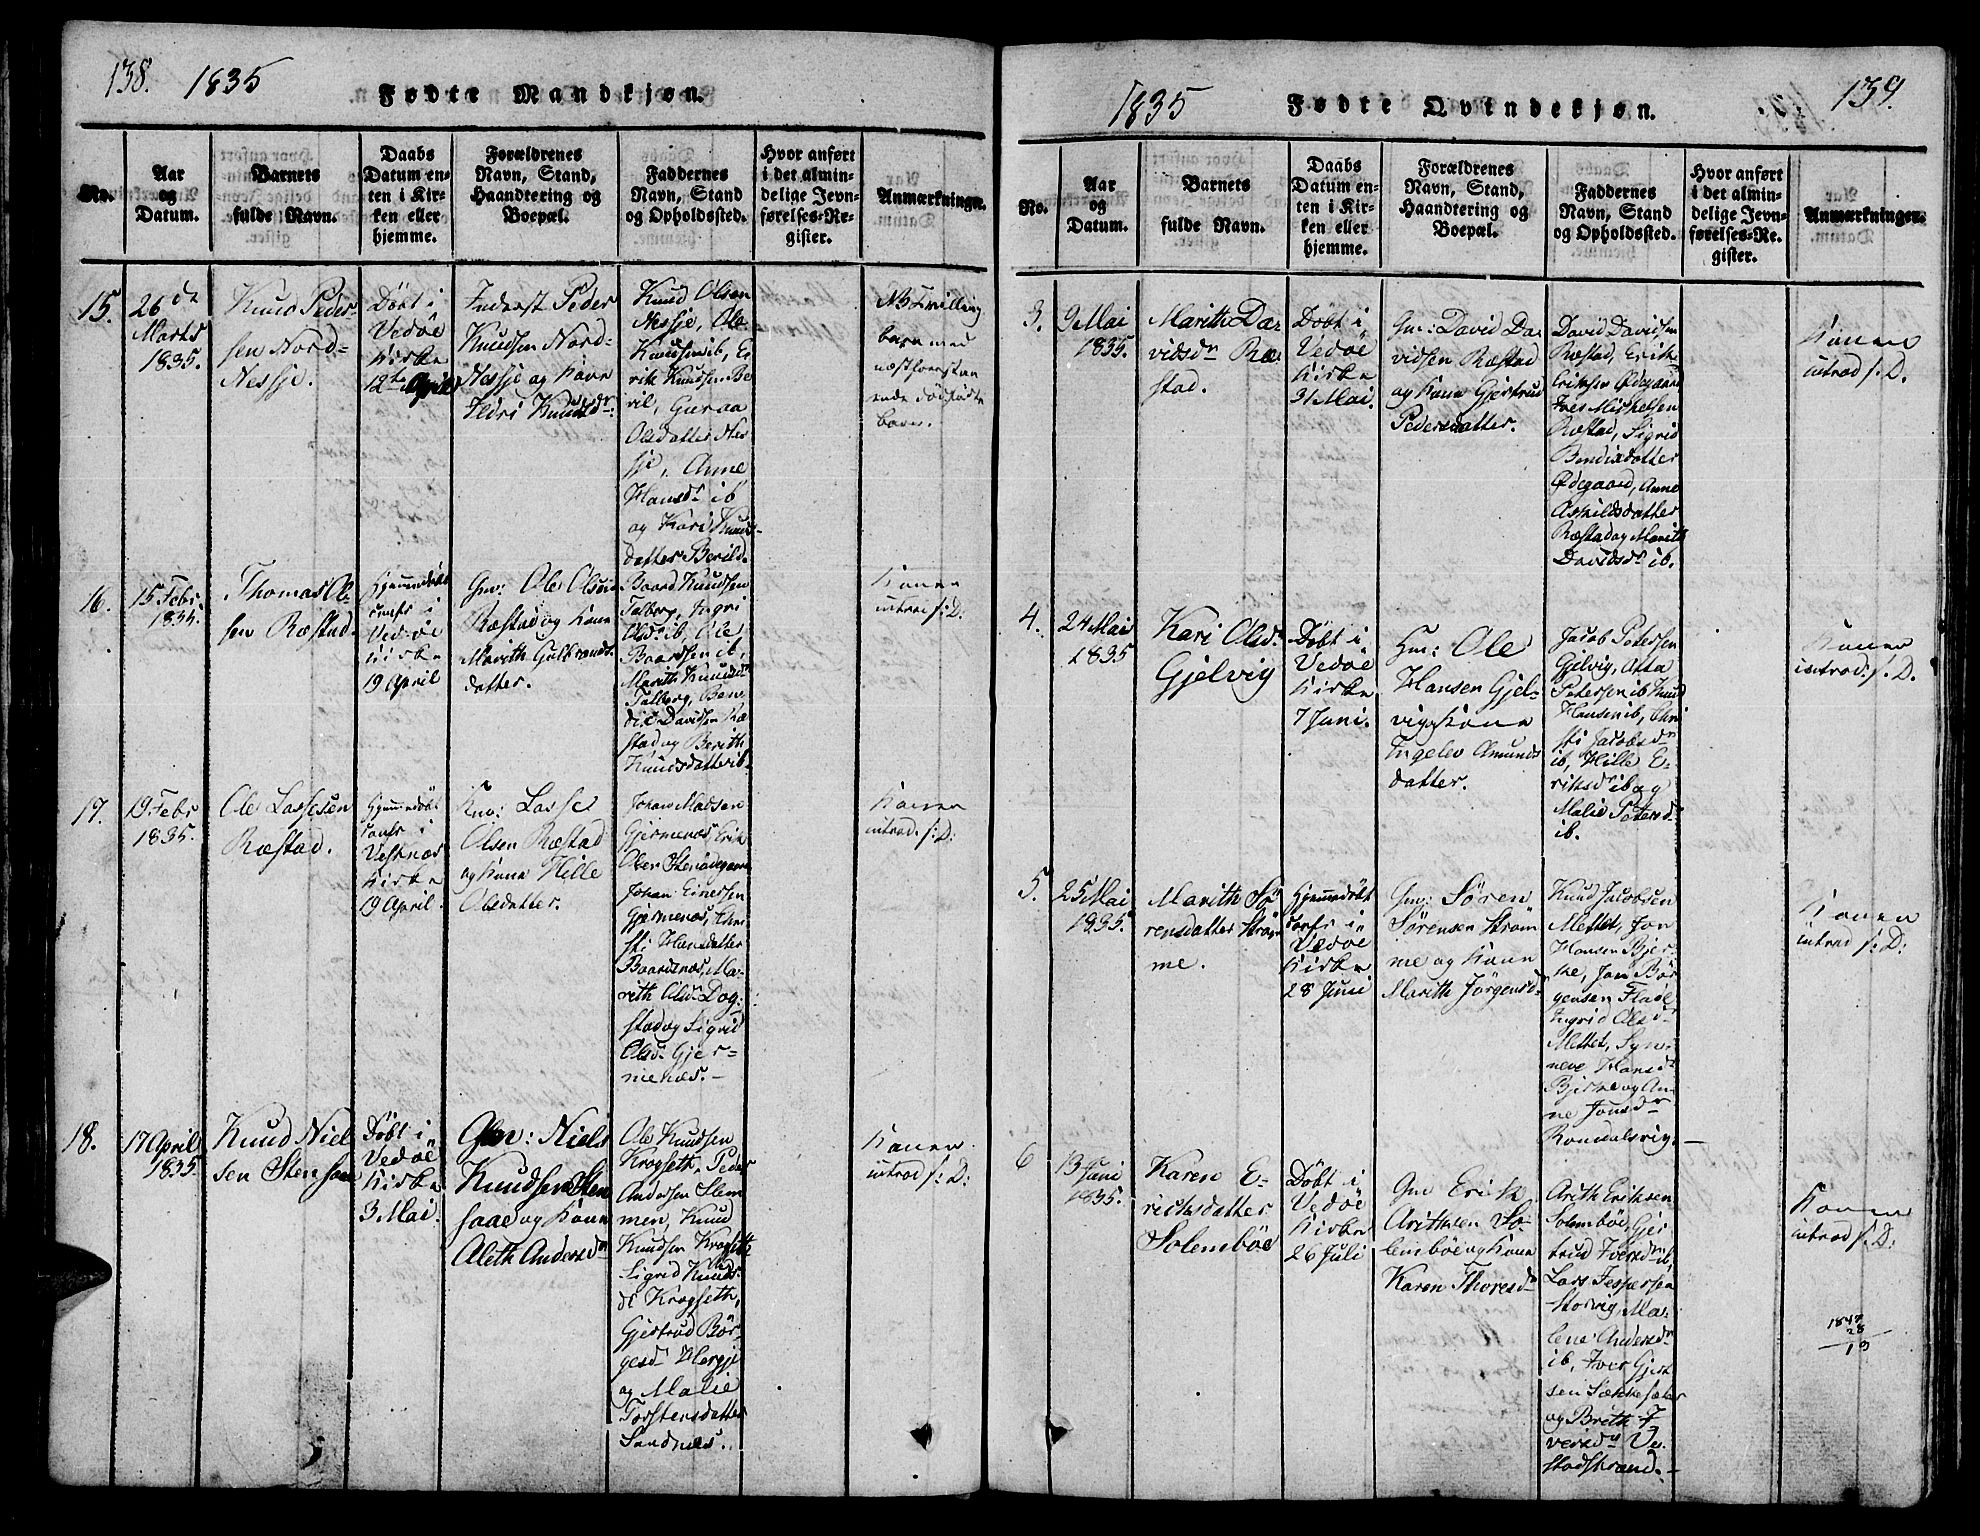 138. 1835
Fødte Mandkjøn.
No.
Aar
og
Datum.
Barnets
fulde Navn.
Daabs
Datum en-
ten i Kir-
ken eller
hjemme.
Forældrenes
Navn, Stand,
Haandtering og
Boepæl.
Faddernes
Navn, Stand
og Opholdssted.
Hvor anført
i det almin-
delige Jevn-
førelses-Re-
gister.
Anmærkninger.
15.
26de
Marts
1835.
Knud Peder-
sen Nord-
Nessje.
Døbt i
Vedøe
Kirke
12te April
Inderst Peder
Knudsen Nord-
Nessje og Kone
Ildri Knudsdr:
Knud Olsen
Nessje, Ole
Knudsen ib, E-
rik Knudsen Be-
ril, Guraa
Olsdatter Nes-
sje, Anne
Hansdr ib
og Kari Knuds-
datter Berild.
NB Tvilling
barn med
næstforestaa
ende dødfødte
barn.
16.
15 Febr
1835.
Thomas Ol-
sen Ræstad.
Hjemmedøbt
conf: i
Vedøe
Kirke
19 April
Gm: Ole Olsen
Ræstad og Kone
Marith Gulbrands-
datter.
Baard Knudsen
Talberg, Ingri
Olsdr ib, Ole
Baardsen ib,
Marith Knudsdr
Talberg, Ben-
dic Davidsen Ræ-
stad og Berith
Knudsdatter ib.
Konen
introd s: D:
17.
19 Febr
1835.
Ole Lassesen
Ræstad.
Hjemmedøbt
conf: i
Vestnæs
Kirke
19 April.
Gm: Lasse
Olsen Ræstad
og Kone Hille
Olsdatter.
Johan Madsen
Gjermenæs, Erik
Olsen Stenødegaard
Johan Einersen
Gjermenæs, Chri-
sti Hansdatter
Baardsnæs, Ma-
rith Olsdr Dog-
stad og Sigrid
Olsdr Gjer-
menæs. –
Konen
introd. s: D:
18.
17 April
1835
Knud Niel-
sen Stensaae
Døbt i
Vedøe
Kirke
3 Mai.
Gm: Niels
Knudsen Sten
saae og Kone
Aleth Andersdr
Ole Knudsen
Krogseth, Peder
Andersen Slem-
men, Knud
Knudsen Krogseth
Sigrid Knuds-
dr Krogseth,
Gjertrud Bør-
gesdr Hergje
og Malie
Torstensdatter
Sandnæs.
Konen
introd s: D:
1835
Fødte Qvindekjøn.
139.
No.
Aar
og
Datum.
Barnets
fulde Navn.
Daabs
Datum en-
ten i Kir-
ken eller
hjemme.
Forældrenes
Navn, Stand,
Haandtering og
Boepæl.
Faddernes
Navn, Stand
og Opholdssted.
Hvor anført
i det almin-
delige Jevn-
førelses-Re-
gister.
Anmærkninger.
3.
9 Mai
1835.
Marith Da-
vidsdr Ræ-
stad.
Døbt i
Vedøe
Kirke
31 Mai.
Gm: David Da-
vidsen Ræstad
og Kone Gjertrud
Pedersdatter.
David Davidsen
Ræstad, Erik
Eriksen Ødegaard
Iver Mikkelsen
Ræstad, Sigrid
Bendixdatter
Ødegaard, Anne
Askildsdatter
Ræstad og Marith
Davidsdr ib.
Konen
introd s: D.
4.
24 Mai
1835
Kari Olsdr
Gjelvig
Døbt i
Vedøe
Kirke
7 Juni.
Gm: Ole
Hansen Gjel-
vig og Kone
Ingelev Amunds-
datter.
Jacob Petersen
Gjelvig, Otta
Petersen ib Knud
Hansen ib, Chri
sti Jacobsdr
ib, Hille E-
riksdr ib og
Malie Petersdr
ib.
Konen
introd: s: D.
5.
25 Mai
1835.
Marith Sø-
rensdatter Strøm-
me.
Hjemmedøbt
conf: i
Vedøe
Kirke
28 Juni
Gm: Søren
Sørensen Strøm-
me og Kone
Marith Jørgensdr
Knud Jacobsen
Mettet, Jon
Hansen Bjer-
ke, Jon Bør-
gensen Flade
Ingrid Olsdr
Mettet, Syn-
neve Hansdr
Bjerke og An-
ne Jonsdr
Romdalsvig. –
Konen
introd s: D:
6
13 Juni
1835.
Karen E-
richsdatter
Solembøe
Døbt i
Vedøe
Kirke
26 Juli
Gm Erik
Arithsen So-
lembøe og Kone
Karen Thoresdr
Arith Eriksen
Solembøe, Gjer-
trud Iversdr ib,
Lars Jespersen
Storvig, Ma-
lene Andersdr
ib, Iver Gjert
sen Sækkesæter
og Brith I-
versdr Ve-
stadstrand. –
Konen
introd s: D:
1847
28
19